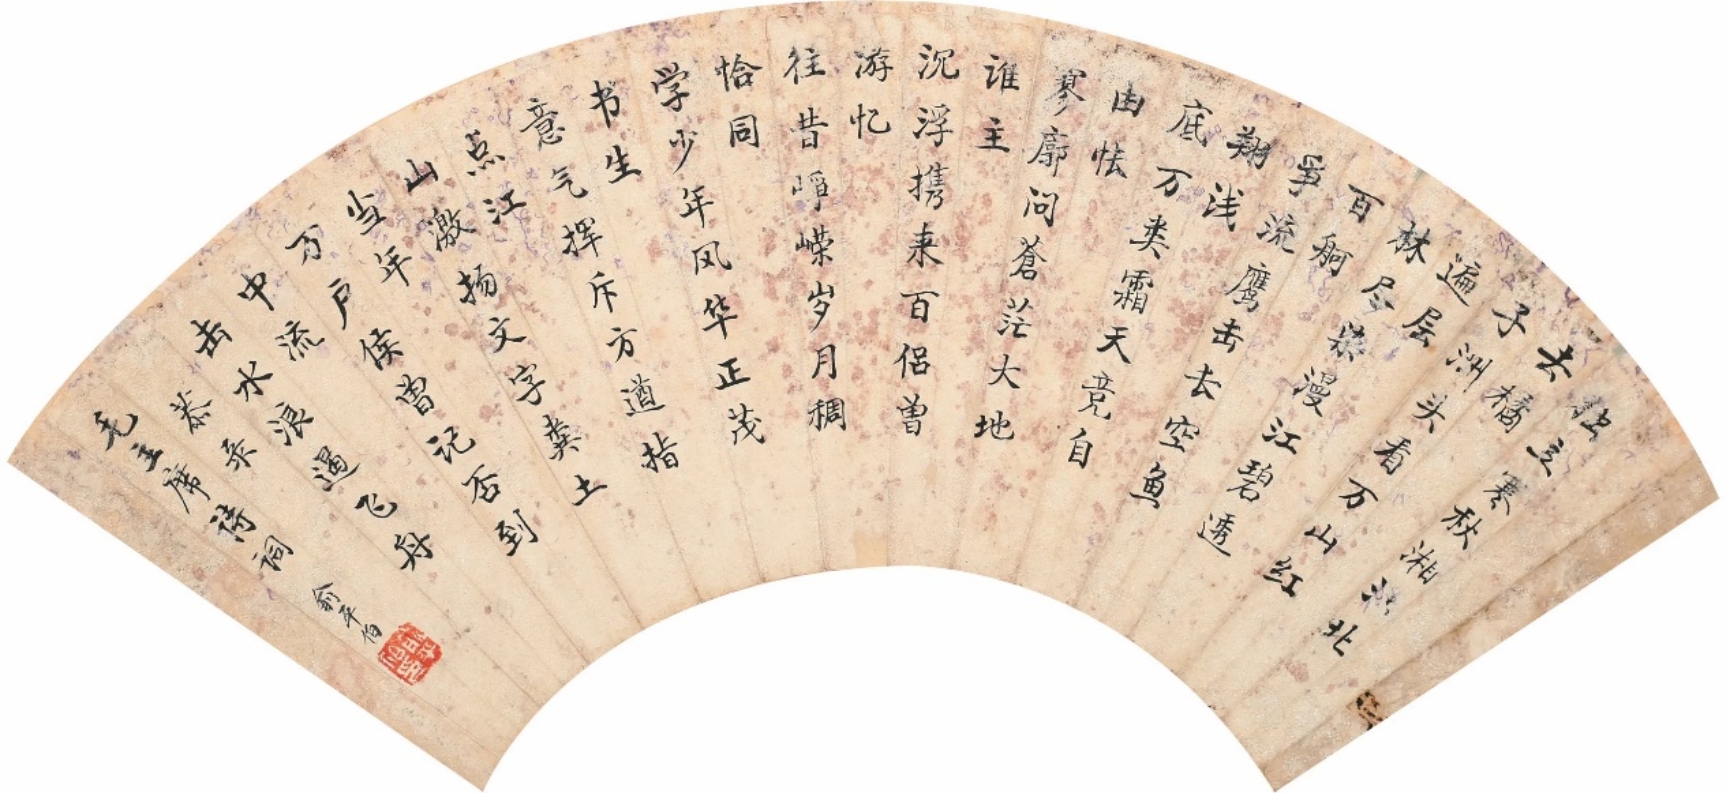 独立寒秋湘江北
去橘
子洲头看万山红
遍层
林尽染漫江碧透
百舸
爭流鹰击长空鱼
翔浅
底万类霜天竞自
由怅
寥廓问蒼茫大地
谁主
沉浮携来百侣曾
游忆
往昔峥嵘岁月稠
恰同
学少年风华正茂
书生
意气挥斥方遒指
点江
山激扬文字粪土
当年
万户侯曾记否到
中流
击水浪遏飞舟
恭录
毛主席诗词
俞平伯